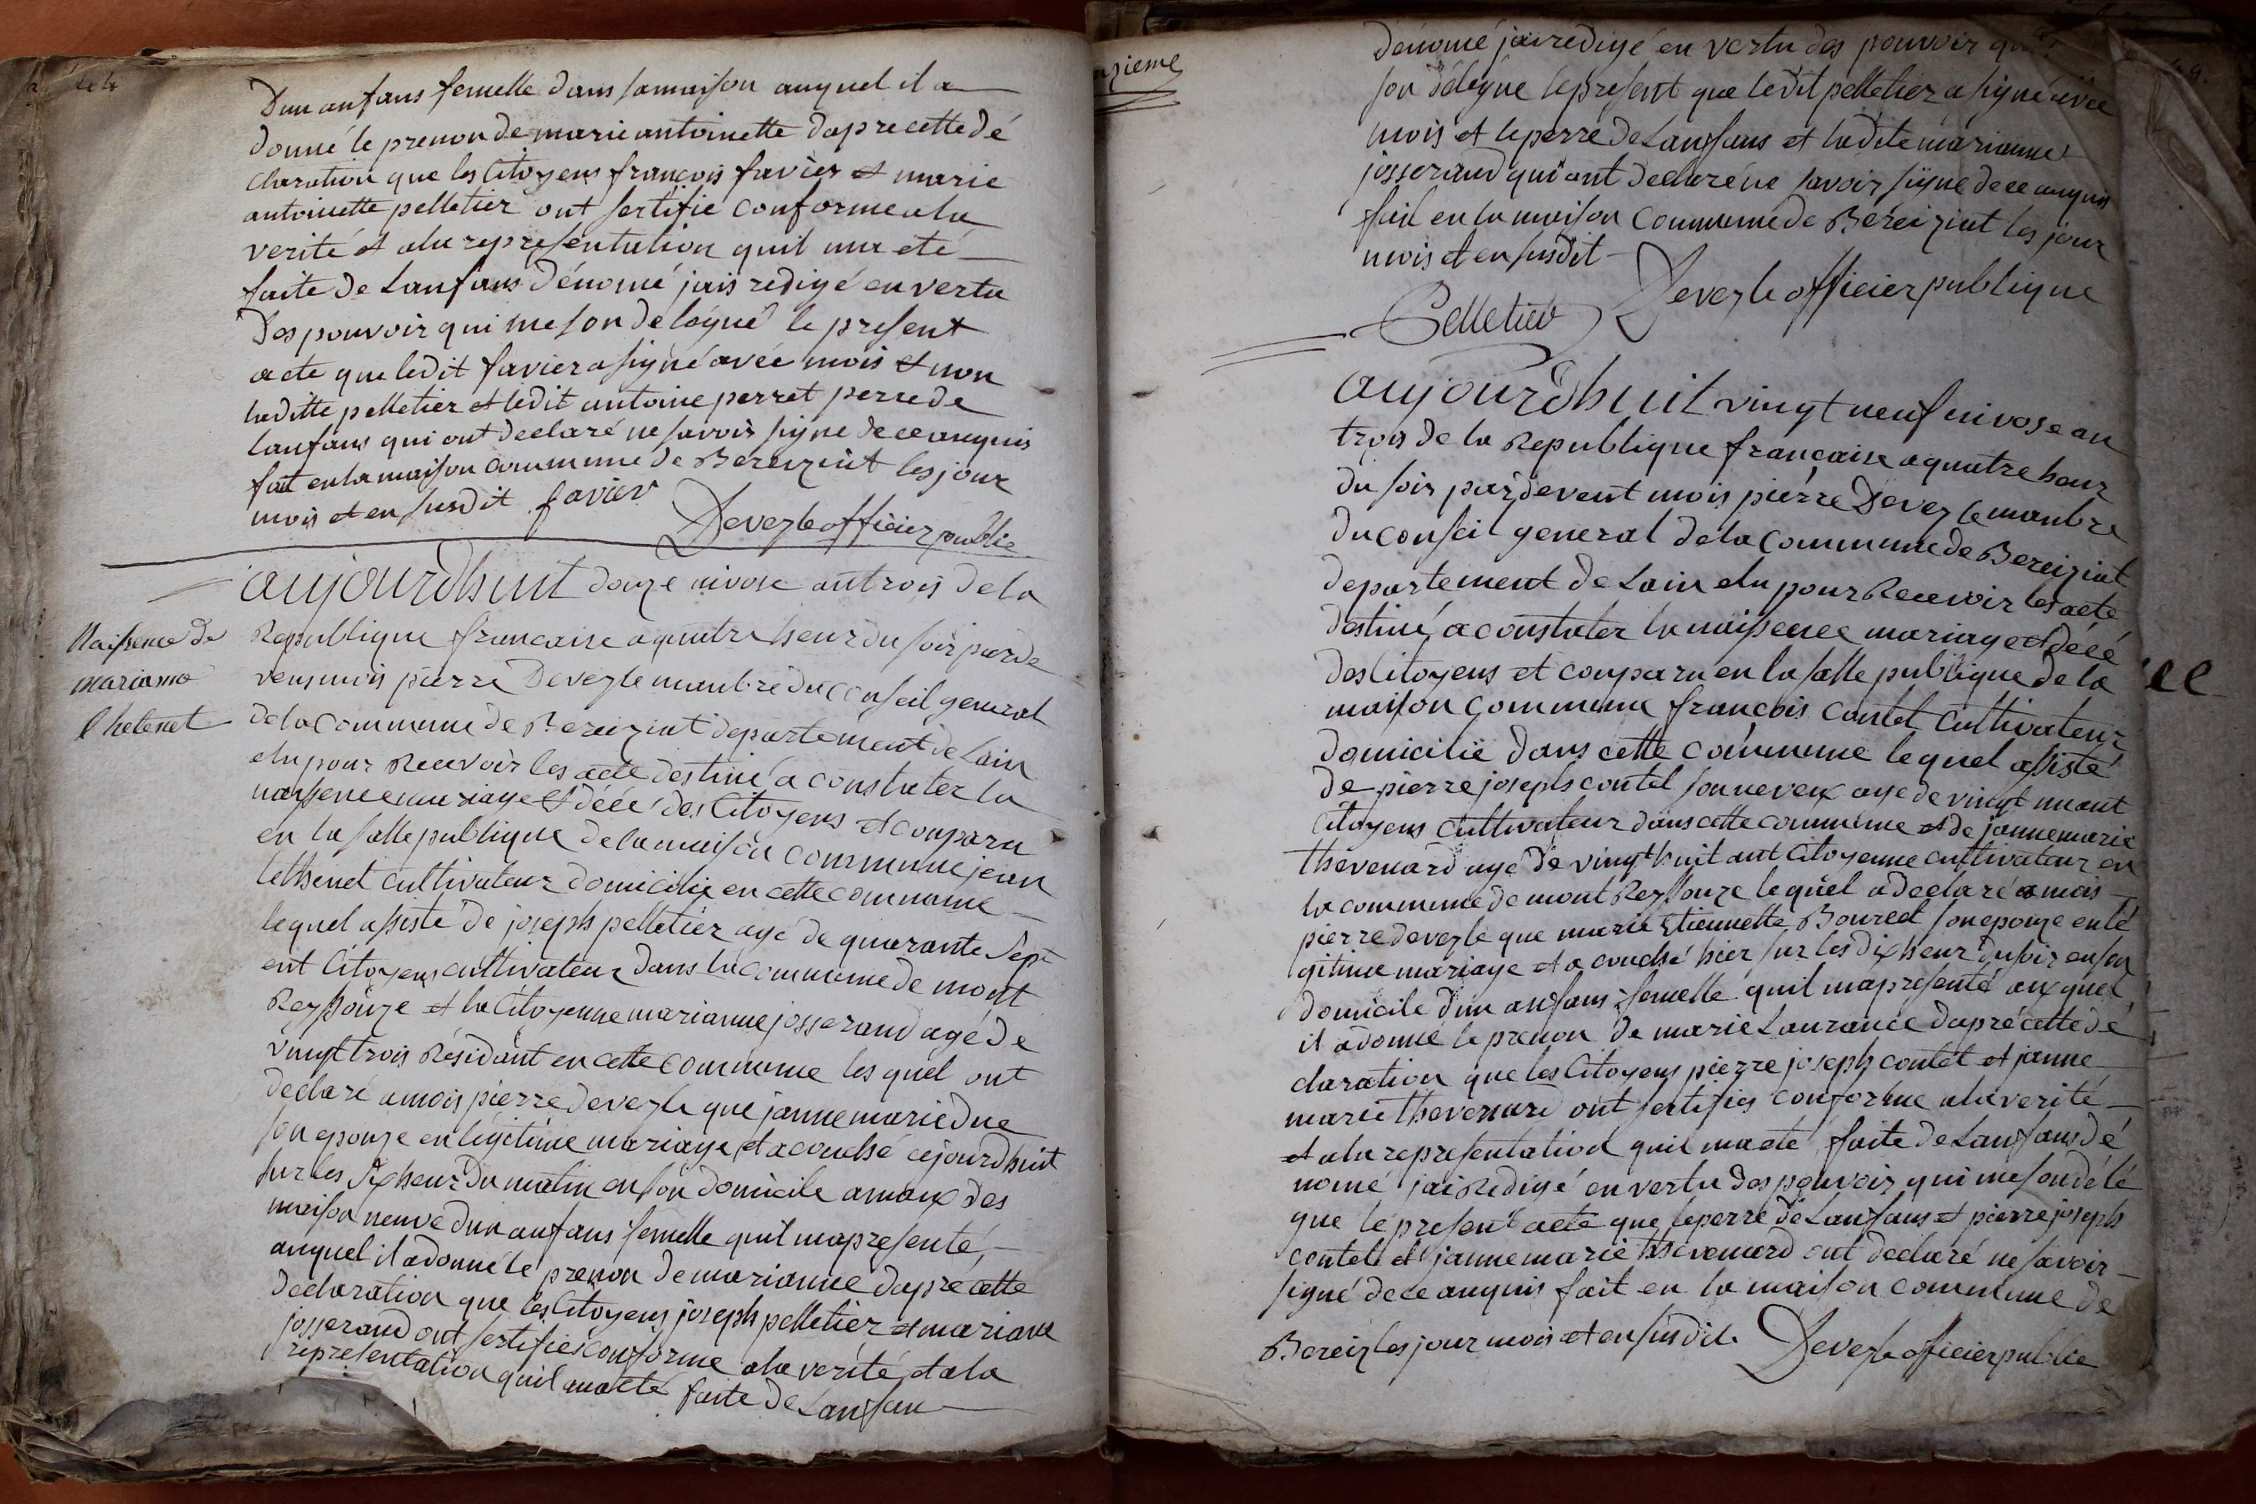 Dun anfans femelle dans samaison auquel il a
donné le prenon de marie antoinette dapre cette dé
claration que les Citoyens francois favier et marie
antoinette pelletier ont sertifié conforme a la
verité et ala representation quil ma eté
faite de Lanfans dénomé jais redigé en vertu
des pouvoir qui me son delegué le present
acte que ledit favier a signé avec mois et non
laditte pelletier et ledit antoine perret perre de
lanfans qui ont declaré ne savoir signe de ce anquis
fait en la maison commune de Bereiziat les jour
mois et en susdit favier
Devezle officier public
Naissence de
marianne
thetenet
aujourdhuit douze nivose an trois de la
Republique francaise a quatre heur du soir parde
vens mois pierre Devezle manbre du conseil general
de la commune de Bereiziat departement de Lain
elu pour Recevoir les acte destiné a constater la
naissence mariage et décé des Citoyens et conparu
en la salle publique de la maison commune jean
tethenet cultivateur domicilié en cette commune
lequel assisté de joseph pelletier agé de quarante sept
ent Citoyens cultivateur dans la commune de mont
Reyssouze et la Citoyenne marianne josserand agé de
vingt trois Résidant en cette commune les quel ont
declaré a mois pierre devezle que janne marie due
son epouze en légitime mariage et acouché cejourdhuit
sur les dix heur du matin en son domicile amaux des
maison neuve dun anfans femelle quil ma presenté
auquel il a donné le prenon de marianne dapré cette
declaration que les Citoyens joseph pelletier et mariane
josserand ont sertifies conforme a la verité et a la
representation quil ma eté faite de Lanfan
nzieme
dénomé jai redigé en vertu des pouvoir qui
son délégué le present que ledit pelletier a signé avec
mois et le perre de Lanfans et ladite marianne
josserand qui ont declaré ne savoir signe de ce anquis
fait en la maison Commune de Bereiziat les jour
mois et en susdit
Pelletier Devezle officier publique
aujourdhuit vingt neuf nivose an
trois de la Republique française a quatre heur
du soir pardevent mois pierre Devezle manbre
du conseil general de la Commune de Bereiziat
departement de Lain elu pour Recevoir les acte
destiné a constater la naissence mariage et décé
des Citoyens et conparu en la salle publique de la
maison Commune francois contet Cultivateur
domicilié dans cette commune lequel assisté
de pierre joseph contet son neveux age de vingt un ant
Citoyens Cultivateur dans cette commune et de janne marie
thevenard agé de vingt huit ant Citoyenne cultivateur en
la commune de mont Reyssouze lequel a declaré a mois
pierre devezle que marie Etiennette Bouret son epouze en lé
gitime mariage et a couché hier sur les dix heur du soir en son
domicile dun anfans femelle quil ma presenté auxquel
il a donné le prenon de marie Laurance dapré cette dé
claration que les Citoyens pierre joseph contet et janne
marie thevenard ont sertifies conforme a la verité
et ala representation quil ma eté faite de Lanfans dé
nomé jai Redigé en vertu des pouvoir qui me son délé
gue le present acte que le perre de Lanfans et pierre joseph
contet et janne marie thevenard ont declaré ne savoir
signé de ce anquis fait en la maison commune de
Bereiz les jour mois et en susdit Devezle officier public